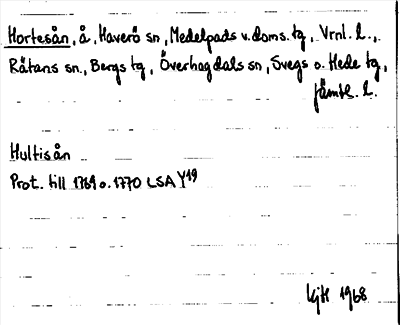 Hortesån, å, Haverö sn, Medelpads v. doms. tg, Vrnl. l.,
Rätans sn., Bergs tg, Överhogdals sn, Svegs o. Hede tg,
Jämtl. l.
Hultisån
Prot. till 1769 o. 1770 LSA Y19
KjH 1968